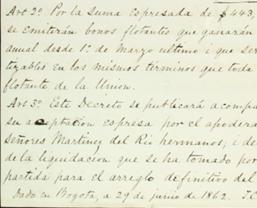 Art 2º. Por la suma espresada de $443,
se emitirán bonos flotantes que ganarán
anual desde 1º. de Marzo ultimo i que ser
tizables en los mismos términos que toda
flotante de la Union.
Art 3º. Este Decreto se publicará acompa
su aceptacion espresa por el apodera
señores Martinez del Rio hermanos, i de
de la liquidacion que se ha tomado por
partida para el arreglo definitivo del
Dado en Bogotá, a 29 de junio de 1862.